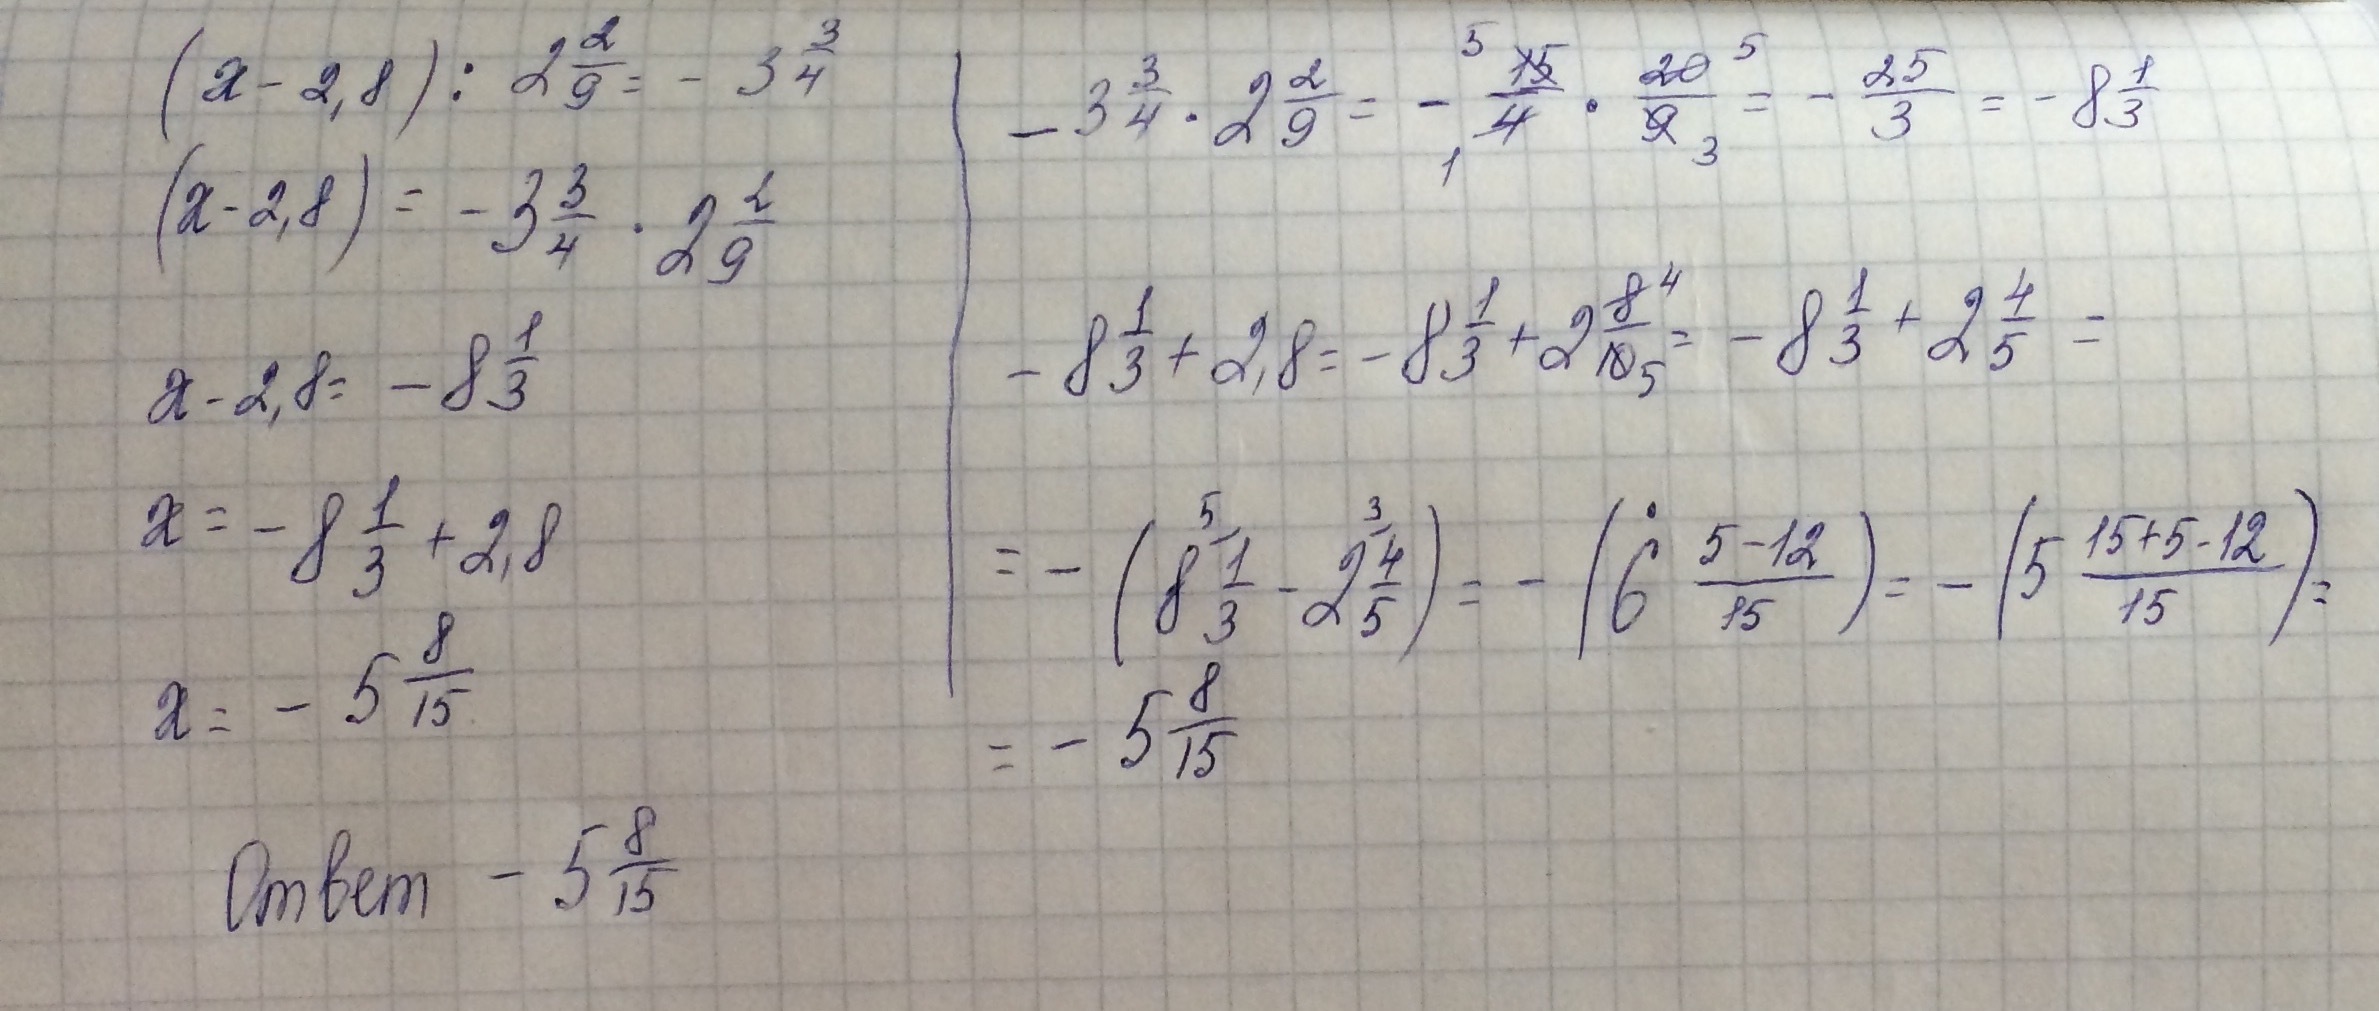 (x - 2,8) : 2 2/9 = - 3 3/4
(x - 2,8) = - 3 3/4 · 2 2/9
x - 2,8 = - 8 1/3
x = - 8 1/3 + 2,8
x = - 5 8/15
Ответ - 5 8/15
- 3 3/4 · 2 2/9 = - 15/4 · 20/9 = - 25/3 = - 8 1/3
5 5 1 3
- 8 1/3 + 2,8 = - 8 1/3 + 2 8/10 = - 8 1/3 + 2 4/5 =
4 5
= - (8 1/3 - 2 4/5) = - (6 5-12/15) = - (5 15+5-12/15) =
5 3
= - 5 8/15